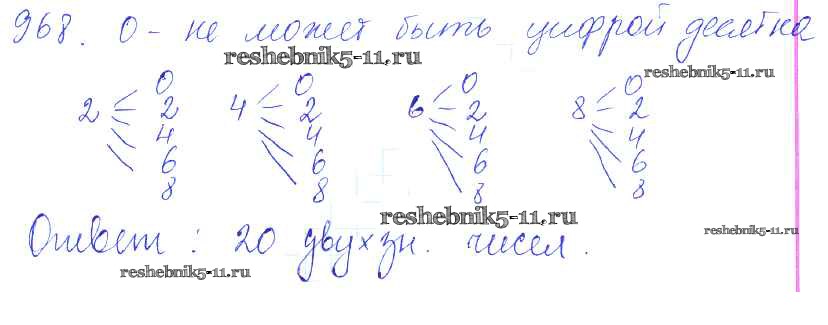 968. 0 - не может быть цифрой десятка
reshebnik5-11.ru
reshebnik5-11.ru
0 0 0 0
2 2 4 2 6 2 8 2
4 4 4 4
6 6 6 6
8 8 8 8
reshebnik5-11.ru
Ответ: 20 двухзн. чисел.
reshebnik5-11.ru
reshebnik5-11.ru